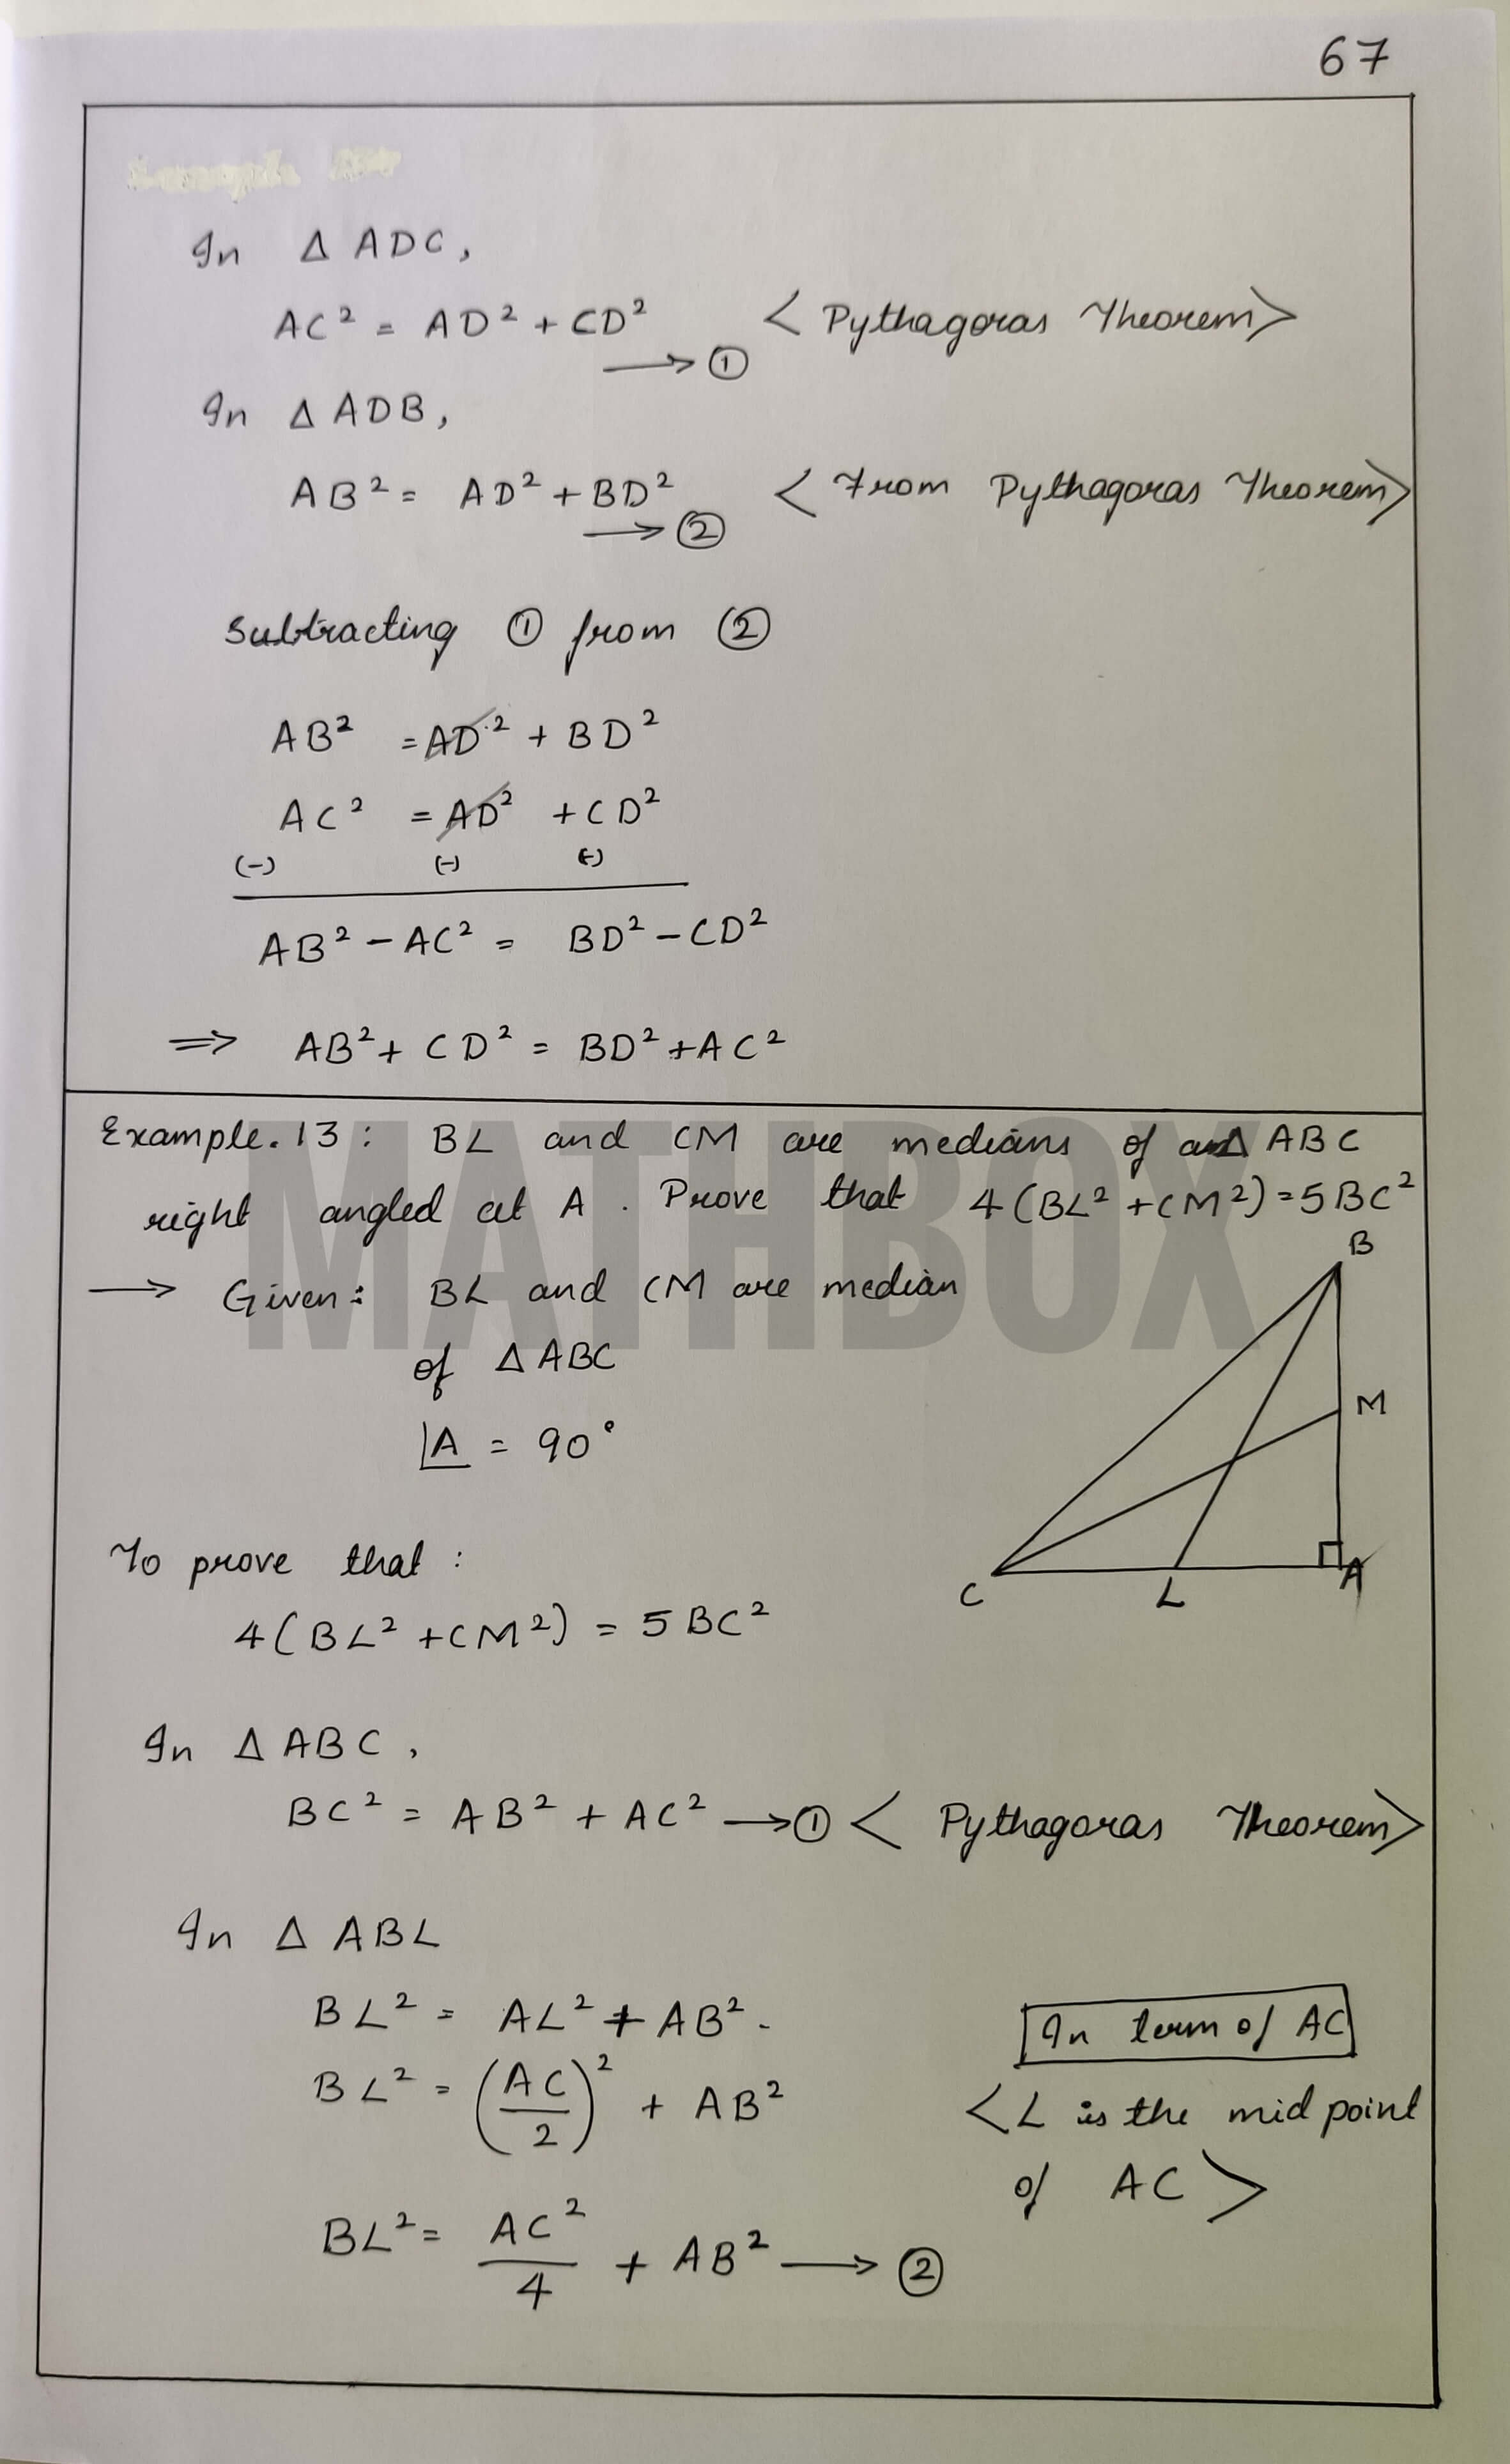 67
In Δ ADC,
AC² = AD² + CD² < Pythagoras Theorem>
⟶ ①
In Δ ADB,
AB² = AD² + BD² < From Pythagoras Theorem>
⟶ ②
Subtracting ① from ②
AB² = AD² + BD²
AC² = AD² + CD²
(-) (-) (-)
AB² - AC² = BD² - CD²
⇒ AB² + CD² = BD² + AC²
Example. 13 : BL and CM are medians of a Δ ABC
right angled at A . Prove that 4(BL² + CM²) = 5BC²
→ Given : BL and CM are median
of Δ ABC
∠A = 90°
B
M
C
L
A
To prove that :
4(BL² + CM²) = 5 BC²
In Δ ABC,
BC² = AB² + AC² ⟶ ① < Pythagoras Theorem>
In Δ ABL
BL² = AL² + AB² .
In term of AC
BL² = (AC/2)² + AB² < L is the mid point
of AC >
BL² = AC²/4 + AB² ⟶ ②
MATHBOX